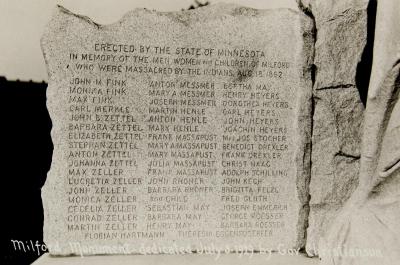 ERECTED BY THE STATE OF MINNESOTA
IN MEMORY OF THE MEN, WOMEN AND CHILDREN OF MILFORD
WHO WERE MASSACRED BY THE INDIANS, AUG. 18, 1862
JOHN M. FINK ANTON MESSMER BERTHA MAY
MONICA FINK MARY A MESSMER HENRY HEYERS
MAX FINK JOSEPH MESSMER DOROTHEA HEYERS
CARL MERKLE MARTIN HENLE CARL HEYERS
JOHN B. ZETTEL ANTON HENLE JOHN HEYERS
BARBARA ZETTEL MARY HENLE JOACHIM HEYERS
ELIZABETH ZETTEL FRANK MASSAPUST MRS JOE STOCKER
STEPHAN ZETTEL MARY A MASSAPUST BENEDICT DREXLER
ANTON ZETTEL FRANK DREXLER
JOHANNA ZETTEL JULIA MASSAPUST CHRIST HAAG
MAX ZELLER FRANK MASSAPUST ADOLPH SCHILLING
LUCRETIA ZELLER JOHN ROHNER JOHN KECK
JOHN ZELLER BARBARA ROHNER BRIGITTA
MONICA ZELLER AND CHILD FRED GLUTH
CECELIA ZELLER SEBASTIAN MAY JOSEPH EMMERICH
CONRAD ZELLER BARBARA MAY GEORGE ROESSER
MARTIN ZELLER HENRY MAY BARBARA ROESSER
FLORIAN HARTMANN THERESIA EGGENSDERFER
Milford Monument dedicated July 1929 by Gov Christianson